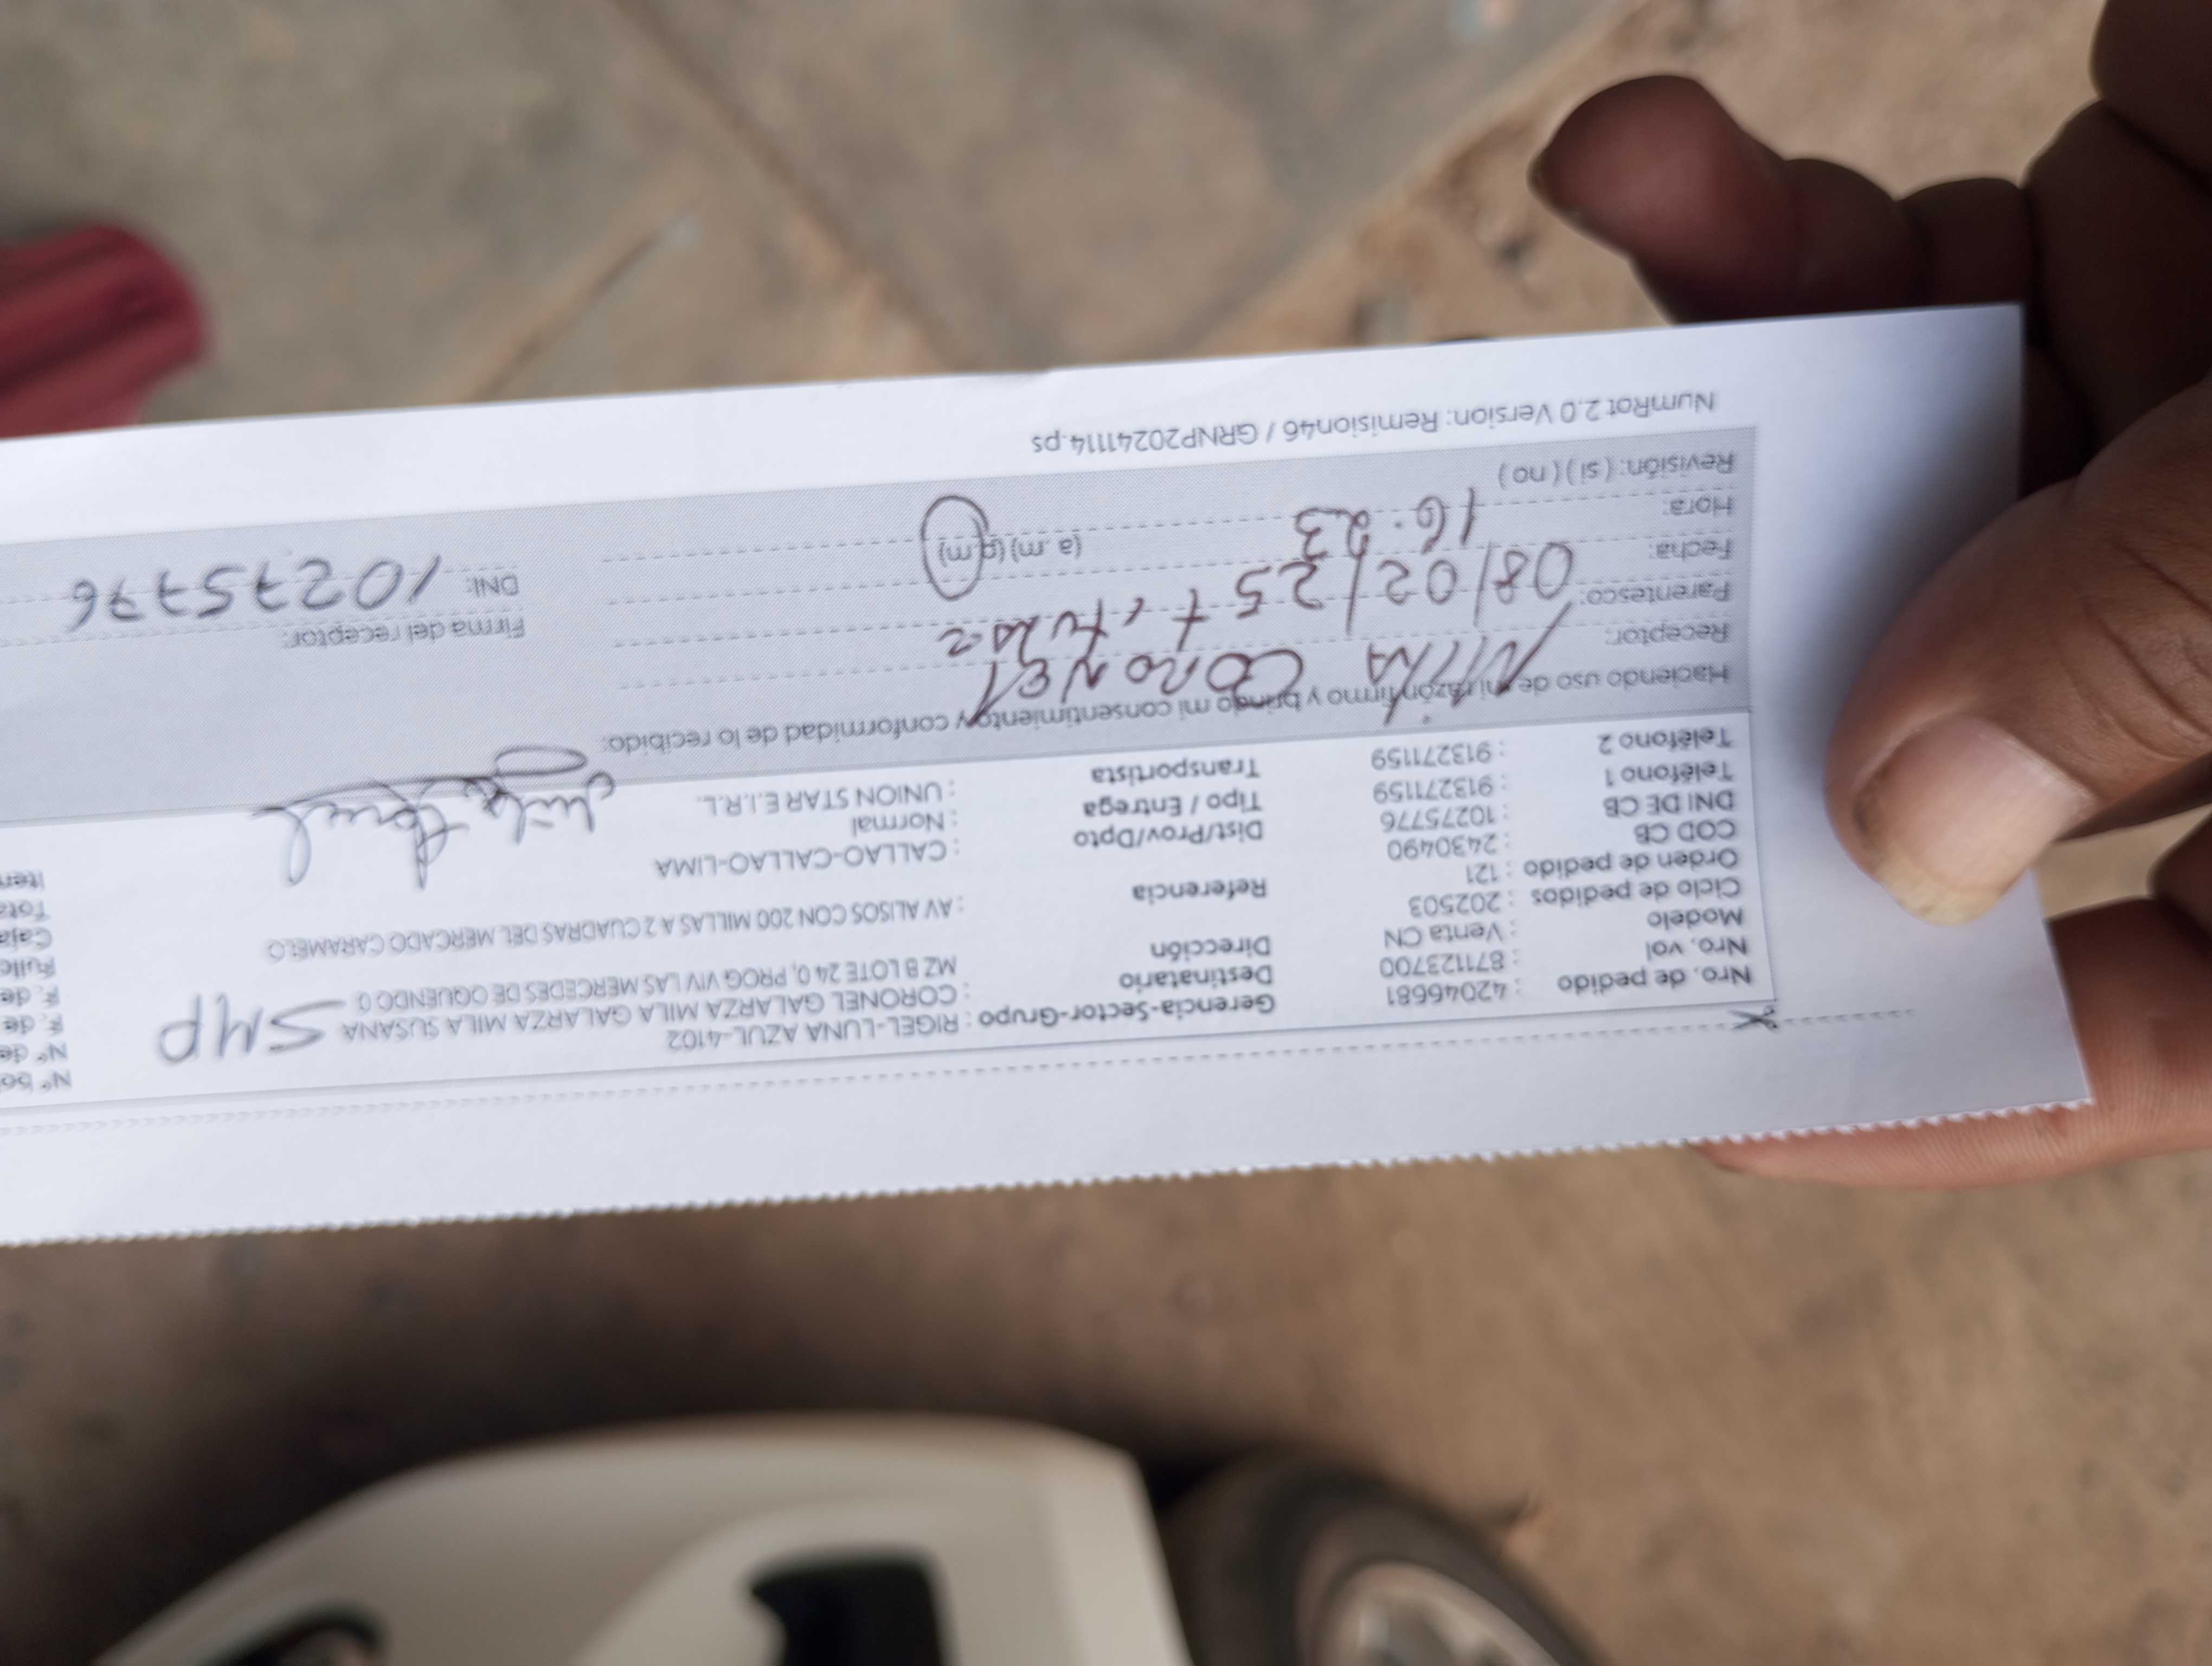 Nro. de pedido : 42046681 Gerencia-Sector-Grupo : RIGEL-LUNA AZUL-4102 Nº
Nro. vol : 871123700 Destinatario : CORONEL GALARZA MILA GALARZA MILA SUSANA SMP Nº de
Modelo : Venta CN Dirección MZ B LOTE 24 0, PROG VIV LAS MERCEDES DE OQUENDO 0 F. de
Ciclo de pedidos : 202503 F. de
Orden de pedido : 121 Referencia : AV ALISOS CON 200 MILLAS A 2 CUADRAS DEL MERCADO CARAMELO
COD CB : 2430490 Caja
DNI DE CB : 10275776 Dist/Prov/Dpto : CALLAO-CALLAO-LIMA Tota
Teléfono 1 : 913271159 Tipo / Entrega : Normal Item
Teléfono 2 : 913271159 Transportista : UNION STAR E.I.R.L.
Haciendo uso de mi razón firmo y brindo mi consentimiento y conformidad de lo recibido:
Receptor: MILA CORONEL Firma del receptor:
Parentesco: titular
Fecha: 08/02/25 DNI: 10275776
Hora: 16:23 (a. m) (p. m)
Revisión: ( si ) ( no )
NumRot 2.0 Version: Remision46 / GRNP20241114.ps